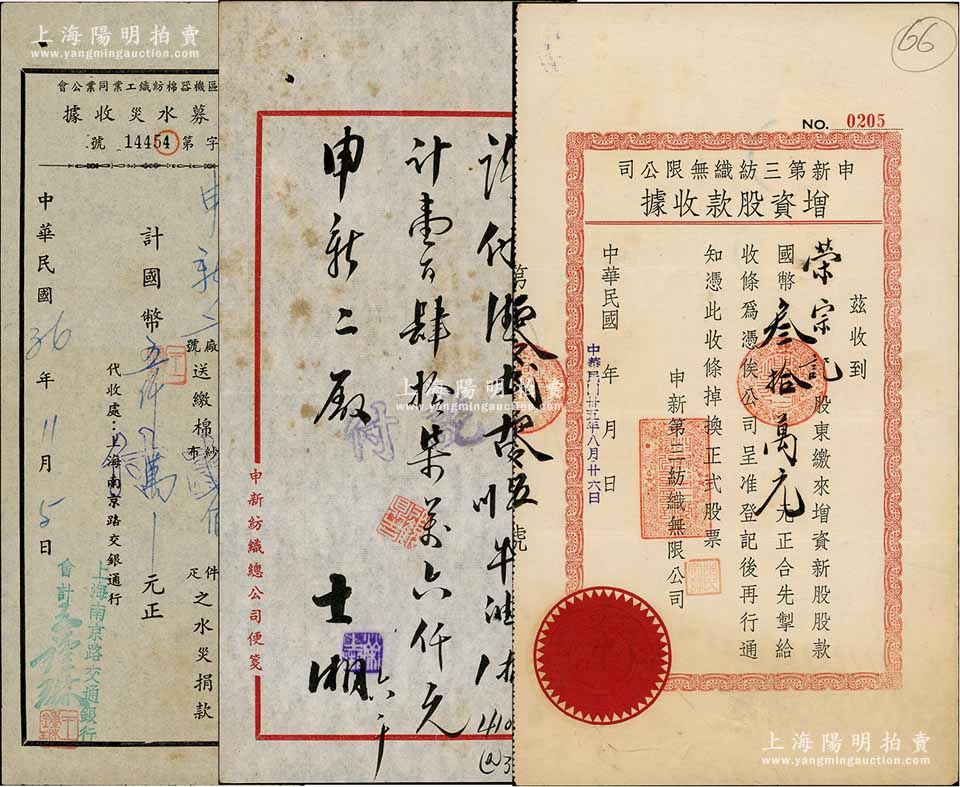 上海陽明拍賣
www.yangmingauction.com
66
NO. 0205
申新第三紡織無限公司
增資股款收據
茲收到
榮宗記股東繳來增資新股股款
國幣叁拾萬元元正合先掣給
收條爲憑俟公司呈准登記後再行通
知憑此收條掉換正式股票
申新第三紡織無限公司
中華民國年月日
中華民國卅五年八月廿六日
第
號
計壹百肆拾柒萬六仟元
申新二廠
士湘
付
申新紡織總公司便箋
區機器棉紡織工業同業公會
募水災收據
字第14454號
申新二廠送繳棉紗件之水災捐款
號
布
疋
計國幣五仟萬元正
代收處：上海南京路交銀通行
中華民國36年11月5日
上海南京路交通銀行
會計
上海陽明拍賣
www.yangmingauction.com